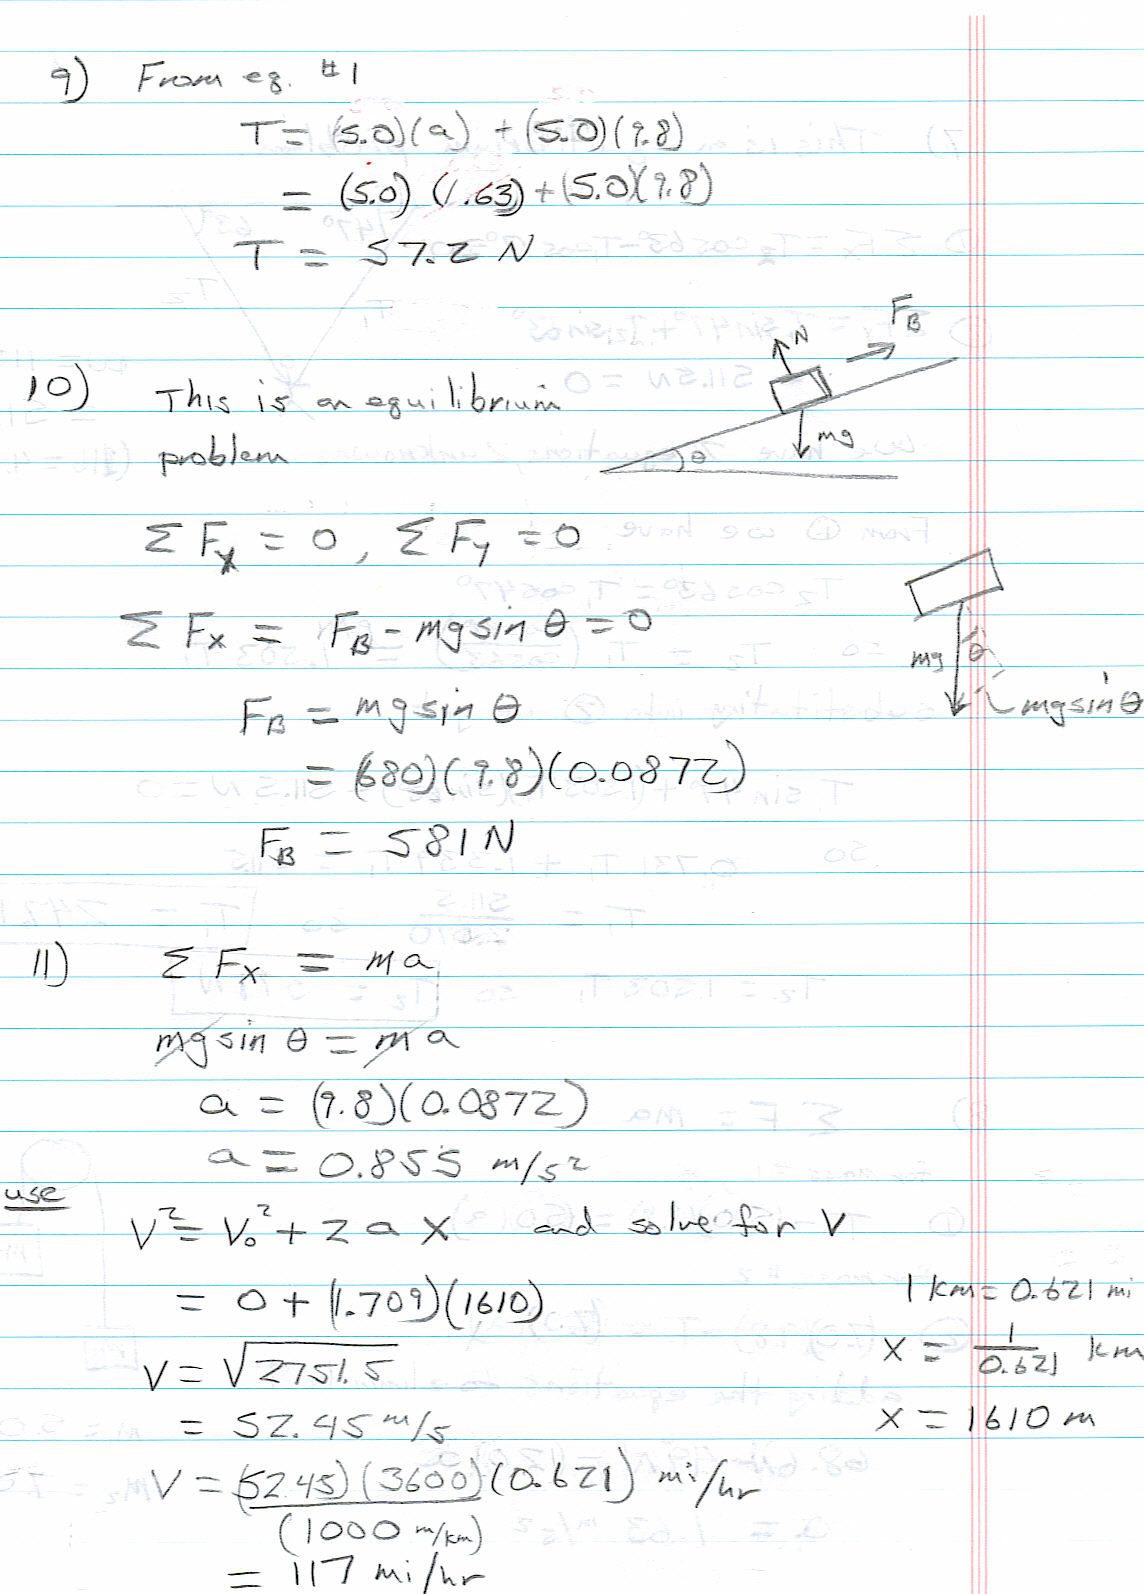 9) From eq. #1
T = (5.0)(a) + (5.0)(9.8)
= (5.0) (1.63) + (5.0)(9.8)
T = 57.2 N
10) This is an equilibrium
problem
N
F_B
mg
θ
Σ F_x = 0, Σ F_y = 0
Σ F_x = F_B - mg sin θ = 0
mg
θ
mg sin θ
F_B = mg sin θ
= (680)(9.8)(0.0872)
F_B = 581 N
11) Σ F_x = ma
mg sin θ = ma
a = (9.8)(0.0872)
a = 0.855 m/s²
use
V² = V₀² + 2 a x and solve for V
= 0 + (1.709)(1610)
1 km = 0.621 mi
V = √2751.5
x = 1/0.621 km
= 52.45 m/s
x = 1610 m
V = (52.45)(3600)(0.621) mi/hr
(1000 m/km)
= 117 mi/hr